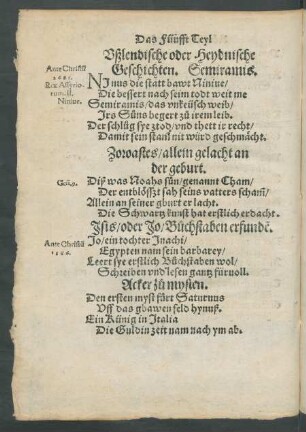 Das Fünfft Teyl
Vßlendische oder Heydnische
Geschichten. Semiramis.
Ante Christū
Rex Assyrio-
rum. II.
Ninius.
NInus die statt bawt Niniue/
Die bessert nach seim todt weit me
Semiramis/ das vnkeüsch weib/
Irs Süns begert zů irem leib.
Der schlůg sye ztod/ vnd thett ir recht/
Damit sein stam̄ nit würd geschmächt.
Zoroastes/ allein gelacht an
der geburt.
Diß was Noahs sůn/ genannt Cham/
Der entblößt sah seins vatters scham̄/
Allein an seiner gburt er lacht.
Die Schwartz kunst hat erstlich erdacht.
Isis/ oder Jo/ Bůchstaben erfundē.
Ante Christū
Jo/ ein tochter Inachi/
Egypten nam sein barbarey/
Leert sye erstlich Bůchstaben wol/
Schreiben vnd lesen gantz für voll.
Äcker zů mysten.
Den ersten myst fůrt Saturnus
Vff das gbawen feld hynuß.
Ein Künig in Italia
Die Guldin zeit nam nach ym ab.